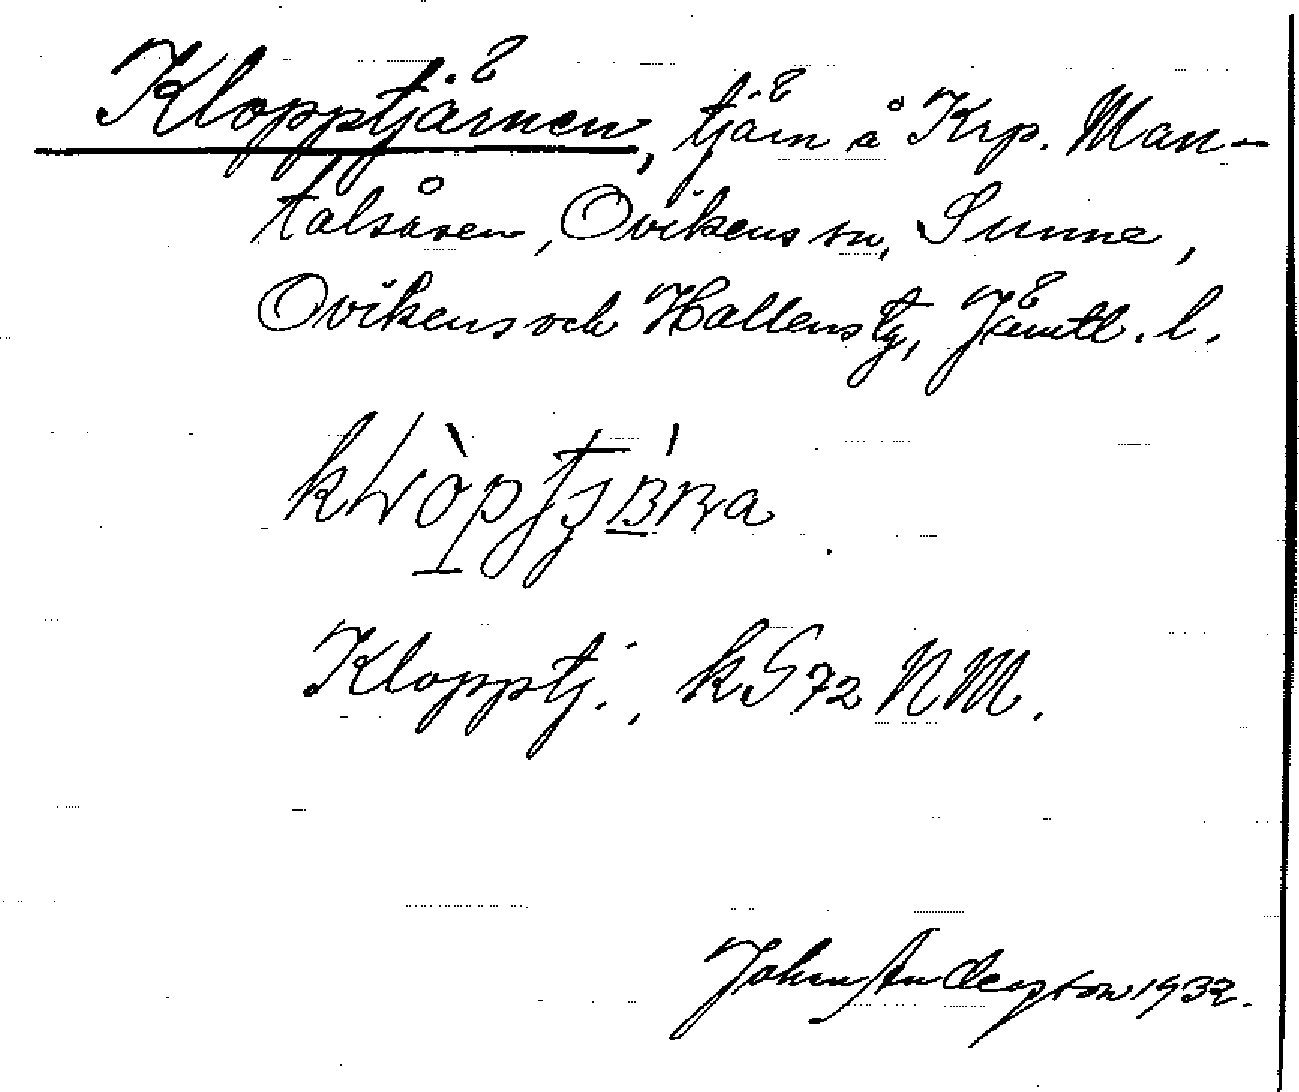 Klopptjärnen, tjärn å Krp. Man-
talsåsen, Ovikens sn, Sunne,
Ovikens och Hallens tg, Jämtl. l.
Klopptj., kG 72 NM.
John Anderson 1932.